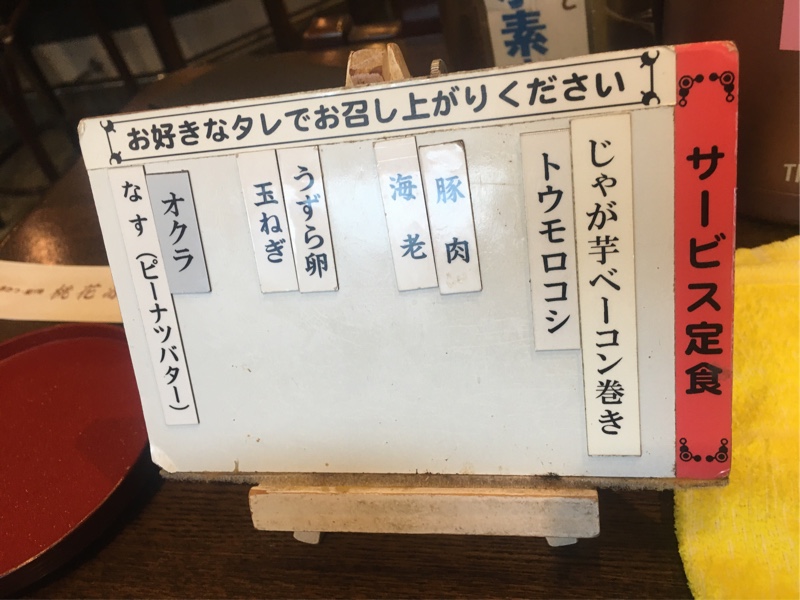 お好きなタレでお召し上がりください
サービス定食
じゃが芋ベーコン巻き
トウモロコシ
豚肉
海老
うずら卵
玉ねぎ
オクラ
なす(ピーナツバター)
素
桃花